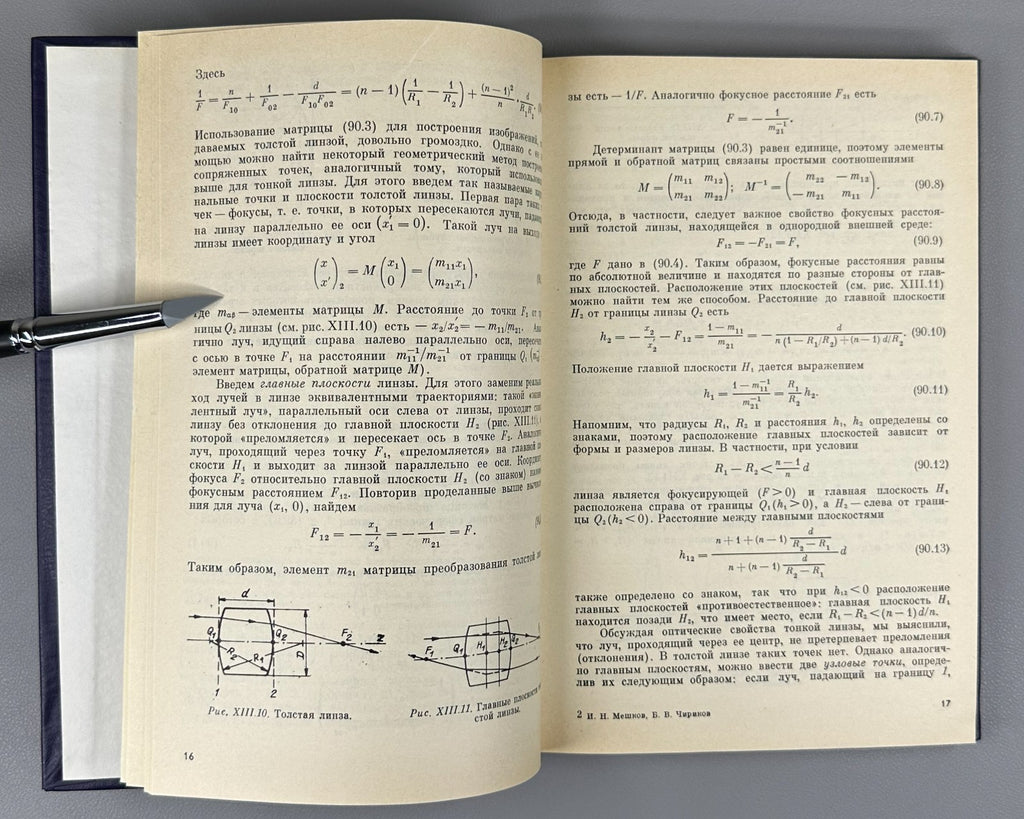 Здесь
1/F = n/F₁₀ + 1/F₀₂ − d/(F₁₀F₀₂) = (n − 1)(1/R₁ − 1/R₂) + (n − 1)²/n · d/(R₁R₂)
Использование матрицы (90.3) для построения изображений,
даваемых толстой линзой, довольно громоздко. Однако с
мощью можно найти некоторый геометрический метод
сопряженных точек, аналогичный тому, который
выше для тонкой линзы. Для этого введем так называемые
нальные точки и плоскости толстой линзы. Первая пара
чек — фокусы, т. е. точки, в которых пересекаются лучи,
на линзу параллельно ее оси (x′₁ = 0). Такой луч на
линзы имеет координату и угол
(x x′)₂ = M (x₁ 0) = (m₁₁x₁ m₂₁x₁),
где mαβ — элементы матрицы M. Расстояние до точки F₂ от
ницы Q₂ линзы (см. рис. XIII.10) есть — x₂/x′₂ = — m₁₁/m₂₁.
гично луч, идущий справа налево параллельно оси,
с осью в точке F₁ на расстоянии m₁₁⁻¹/m₂₁⁻¹ от границы Q₁
элемент матрицы, обратной матрице M).
Введем главные плоскости линзы. Для этого заменим
ход лучей в линзе эквивалентными траекториями: такой
лентный луч», параллельный оси слева от линзы, проходит
линзу без отклонения до главной плоскости H₂ (рис. XIII.11),
которой «преломляется» и пересекает ось в точке F₂.
луч, проходящий через точку F₁, «преломляется» на главной
скости H₁ и выходит за линзой параллельно ее оси.
фокуса F₂ относительно главной плоскости H₂ (со знаком)
фокусным расстоянием F₁₂. Повторив проделанные выше
ния для луча (x₁, 0), найдем
F₁₂ = − x₁/x′₂ = − 1/m₂₁ = F.
Таким образом, элемент m₂₁ матрицы преобразования толстой
d
Q₁ Q₂ F₂ z
R₂ R₁ D
1 2
F₁ Q₁ H₁ H₂ Q₂
Рис. XIII.10. Толстая линза.
Рис. XIII.11. Главные плоскости
стой линзы.
16
зы есть — 1/F. Аналогично фокусное расстояние F₂₁ есть
F = − 1/m₂₁⁻¹. (90.7)
Детерминант матрицы (90.3) равен единице, поэтому элементы
прямой и обратной матриц связаны простыми соотношениями
M = (m₁₁ m₁₂ m₂₁ m₂₂); M⁻¹ = (m₂₂ −m₁₂ −m₂₁ m₁₁). (90.8)
Отсюда, в частности, следует важное свойство фокусных расстоя-
ний толстой линзы, находящейся в однородной внешней среде:
F₁₂ = −F₂₁ = F, (90.9)
где F дано в (90.4). Таким образом, фокусные расстояния равны
по абсолютной величине и находятся по разные стороны от глав-
ных плоскостей. Расположение этих плоскостей (см. рис. XIII.11)
можно найти тем же способом. Расстояние до главной плоскости
H₂ от границы линзы Q₂ есть
h₂ = − x₂/x′₂ − F₁₂ = (1 − m₁₁)/m₂₁ = − d/(n (1 − R₁/R₂) + (n − 1) d/R₂). (90.10)
Положение главной плоскости H₁ дается выражением
h₁ = (1 − m₁₁⁻¹)/m₂₁⁻¹ = R₁/R₂ h₂. (90.11)
Напомним, что радиусы R₁, R₂ и расстояния h₁, h₂ определены со
знаками, поэтому расположение главных плоскостей зависит от
формы и размеров линзы. В частности, при условии
R₁ − R₂ < (n − 1)/n d (90.12)
линза является фокусирующей (F > 0) и главная плоскость H₁
расположена справа от границы Q₁ (h₁ > 0), а H₂ — слева от грани-
цы Q₂ (h₂ < 0). Расстояние между главными плоскостями
h₁₂ = (n + 1 + (n − 1) d/(R₂ − R₁))/(n + (n − 1) d/(R₂ − R₁)) d (90.13)
также определено со знаком, так что при h₁₂ < 0 расположение
главных плоскостей «противоестественное»: главная плоскость H₁
находится позади H₂, что имеет место, если R₁ − R₂ < (n − 1) d/n.
Обсуждая оптические свойства тонкой линзы, мы выяснили,
что луч, проходящий через ее центр, не претерпевает преломления
(отклонения). В толстой линзе таких точек нет. Однако аналогич-
но главным плоскостям, можно ввести две узловые точки, опреде-
лив их следующим образом: если луч, падающий на границу 1,
2 И. Н. Мешков, Б. В. Чириков
17